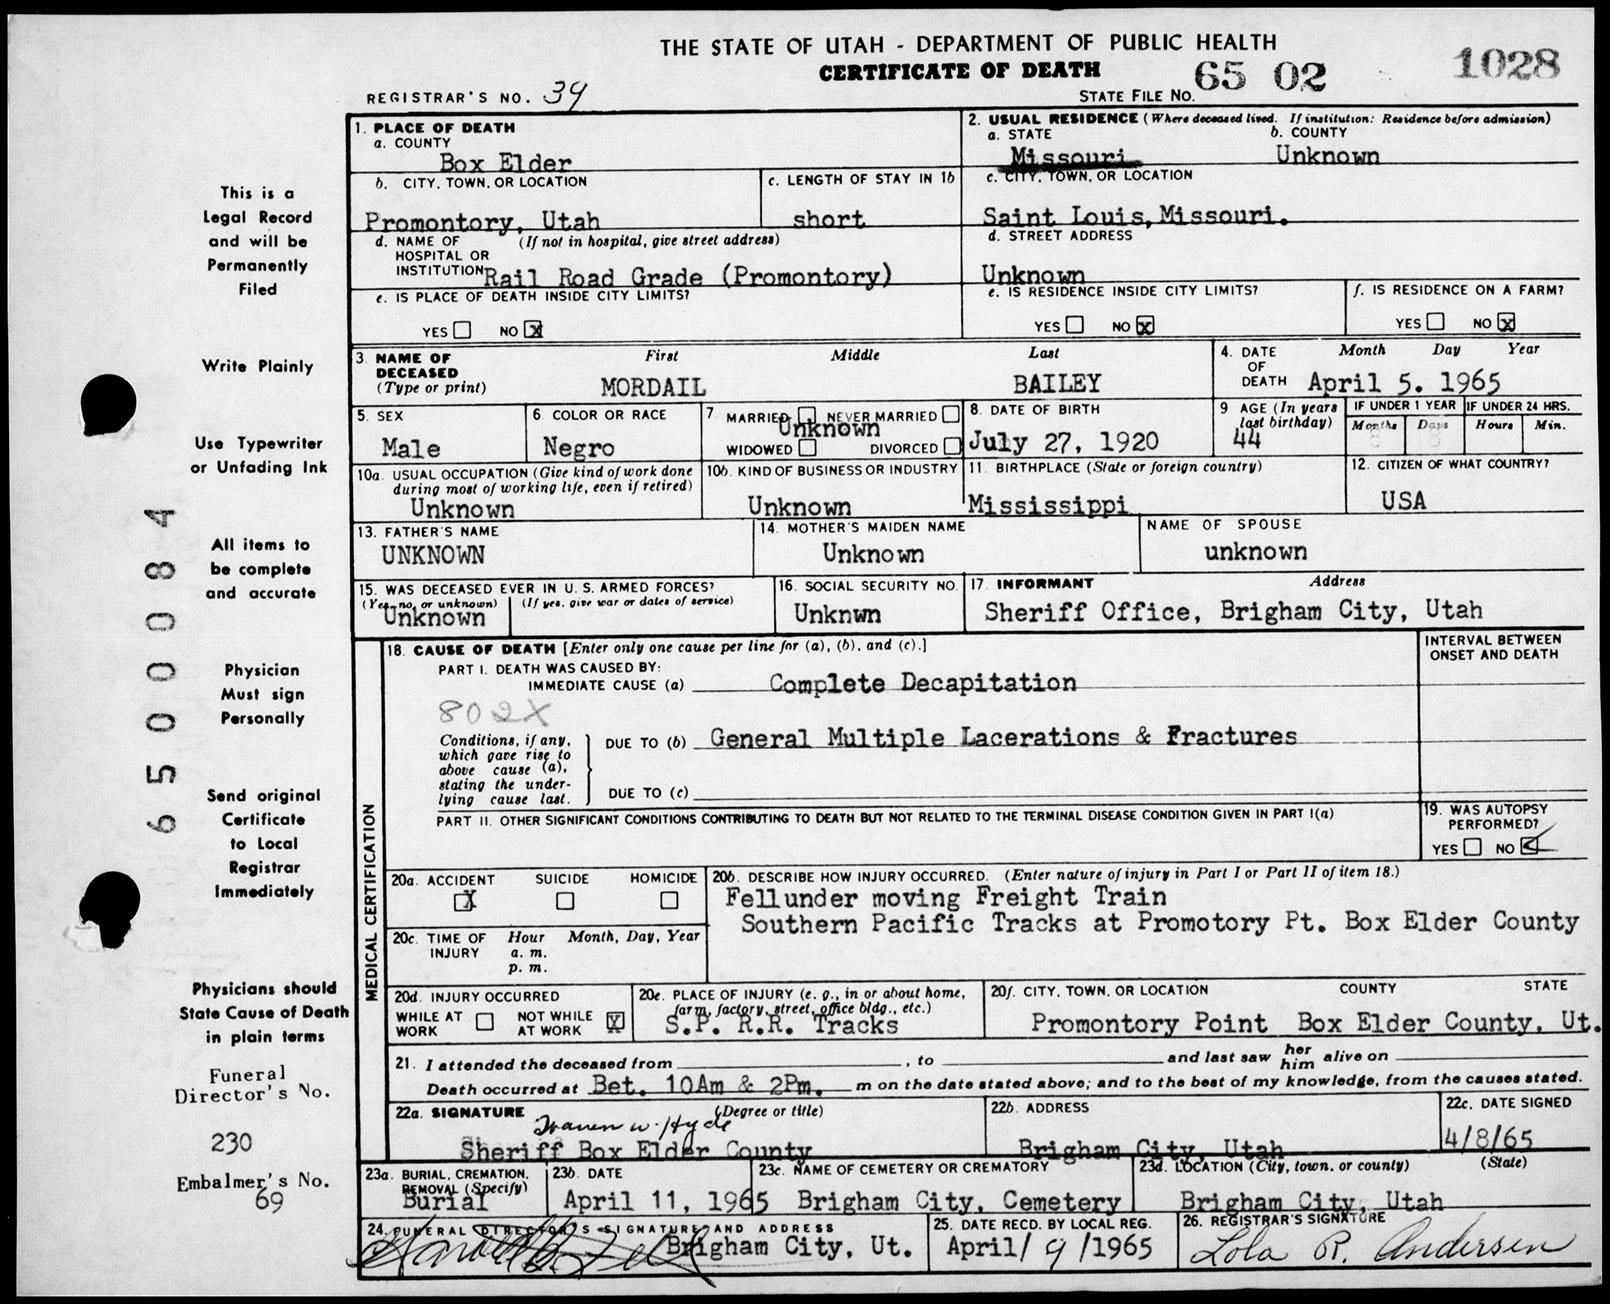 THE STATE OF UTAH - DEPARTMENT OF PUBLIC HEALTH
CERTIFICATE OF DEATH
REGISTRAR'S NO. 39
STATE FILE NO. 65 02 1028
This is a
Legal Record
and will be
Permanently
Filed
Write Plainly
Use Typewriter
or Unfading Ink
All items to
be complete
and accurate
Physician
Must sign
Personally
Send original
Certificate
to Local
Registrar
Immediately
Physicians should
State Cause of Death
in plain terms
Funeral
Director's No.
230
Embalmer's No.
69
6500084
1. PLACE OF DEATH
a. COUNTY
Box Elder
2. USUAL RESIDENCE (Where deceased lived. If institution: Residence before admission)
a. STATE b. COUNTY
Missouri Unknown
b. CITY, TOWN, OR LOCATION
Promontory, Utah
c. LENGTH OF STAY IN 1b
short
c. CITY, TOWN, OR LOCATION
Saint Louis, Missouri.
d. NAME OF (If not in hospital, give street address)
HOSPITAL OR
INSTITUTION Rail Road Grade (Promontory)
d. STREET ADDRESS
Unknown
e. IS PLACE OF DEATH INSIDE CITY LIMITS?
YES NO X
e. IS RESIDENCE INSIDE CITY LIMITS?
YES NO X
f. IS RESIDENCE ON A FARM?
YES NO X
3. NAME OF First Middle Last
DECEASED
(Type or print) MORDAIL BAILEY
4. DATE Month Day Year
OF
DEATH April 5. 1965
5. SEX
Male
6 COLOR OR RACE
Negro
7 MARRIED NEVER MARRIED
Unknown
WIDOWED DIVORCED
8. DATE OF BIRTH
July 27, 1920
9 AGE (In years
last birthday)
44
IF UNDER 1 YEAR IF UNDER 24 HRS.
Months Days Hours Min.
10a. USUAL OCCUPATION (Give kind of work done
during most of working life, even if retired)
Unknown
10b. KIND OF BUSINESS OR INDUSTRY
Unknown
11. BIRTHPLACE (State or foreign country)
Mississippi
12. CITIZEN OF WHAT COUNTRY?
USA
13. FATHER'S NAME
UNKNOWN
14. MOTHER'S MAIDEN NAME
Unknown
NAME OF SPOUSE
unknown
15. WAS DECEASED EVER IN U. S. ARMED FORCES?
(Yes, no, or unknown) (If yes, give war or dates of service)
Unknown
16. SOCIAL SECURITY NO.
Unknwn
17. INFORMANT Address
Sheriff Office, Brigham City, Utah
MEDICAL CERTIFICATION
18. CAUSE OF DEATH [Enter only one cause per line for (a), (b), and (c).]
INTERVAL BETWEEN
ONSET AND DEATH
PART I. DEATH WAS CAUSED BY:
IMMEDIATE CAUSE (a) Complete Decapitation
802X
Conditions, if any,
which gave rise to
above cause (a),
stating the under-
lying cause last.
DUE TO (b) General Multiple Lacerations & Fractures
DUE TO (c)
PART II. OTHER SIGNIFICANT CONDITIONS CONTRIBUTING TO DEATH BUT NOT RELATED TO THE TERMINAL DISEASE CONDITION GIVEN IN PART I(a)
19. WAS AUTOPSY
PERFORMED?
YES NO
20a. ACCIDENT SUICIDE HOMICIDE
X
20b. DESCRIBE HOW INJURY OCCURRED. (Enter nature of injury in Part I or Part II of item 18.)
Fellunder moving Freight Train
Southern Pacific Tracks at Promotory Pt. Box Elder County
20c. TIME OF Hour Month, Day, Year
INJURY a. m.
p. m.
20d. INJURY OCCURRED
WHILE AT NOT WHILE
WORK AT WORK X
20e. PLACE OF INJURY (e. g., in or about home,
farm, factory, street, office bldg., etc.)
S.P. R.R. Tracks
20f. CITY, TOWN, OR LOCATION COUNTY STATE
Promontory Point Box Elder County, Ut.
21. I attended the deceased from , to and last saw her him alive on
Death occurred at Bet. 10Am & 2Pm. m on the date stated above; and to the best of my knowledge, from the causes stated.
22a. SIGNATURE (Degree or title)
Warren W. Hyde
Sheriff Box Elder County
22b. ADDRESS
Brigham City, Utah
22c. DATE SIGNED
4/8/65
23a. BURIAL, CREMATION,
REMOVAL (Specify)
Burial
23b. DATE
April 11, 1965
23c. NAME OF CEMETERY OR CREMATORY
Brigham City, Cemetery
23d. LOCATION (City, town, or county) (State)
Brigham City, Utah
24. FUNERAL DIRECTOR'S SIGNATURE AND ADDRESS
Brigham City, Ut.
25. DATE RECD. BY LOCAL REG.
April/ 9 /1965
26. REGISTRAR'S SIGNATURE
Lola R. Andersen